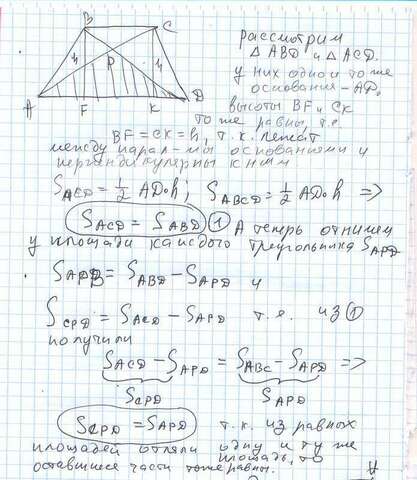 B C
P
h h
A F K D
рассмотрим
△ABD и △ACD.
у них одно и то же
основание - AD.
высоты BF и CK
тоже равны, т.е.
BF = CK = h, т.к. лежат
между парал-ми основаниями и
перпендикулярны к ним
S_ACD = 1/2 AD·h; S_ABCD = 1/2 AD·h =>
S_ACD = S_ABD ① А теперь отнимем
у площади каждого треугольника S_APD
S_APB = S_ABD - S_APD и
S_CPD = S_ACD - S_APD т.е. из ①
получили
S_ACD - S_APD = S_ABC - S_APD =>
S_CPD S_APD
S_CPD = S_APD т.к. из равных
площадей отняли одну и ту же
площадь, то
оставшиеся части тоже равны.